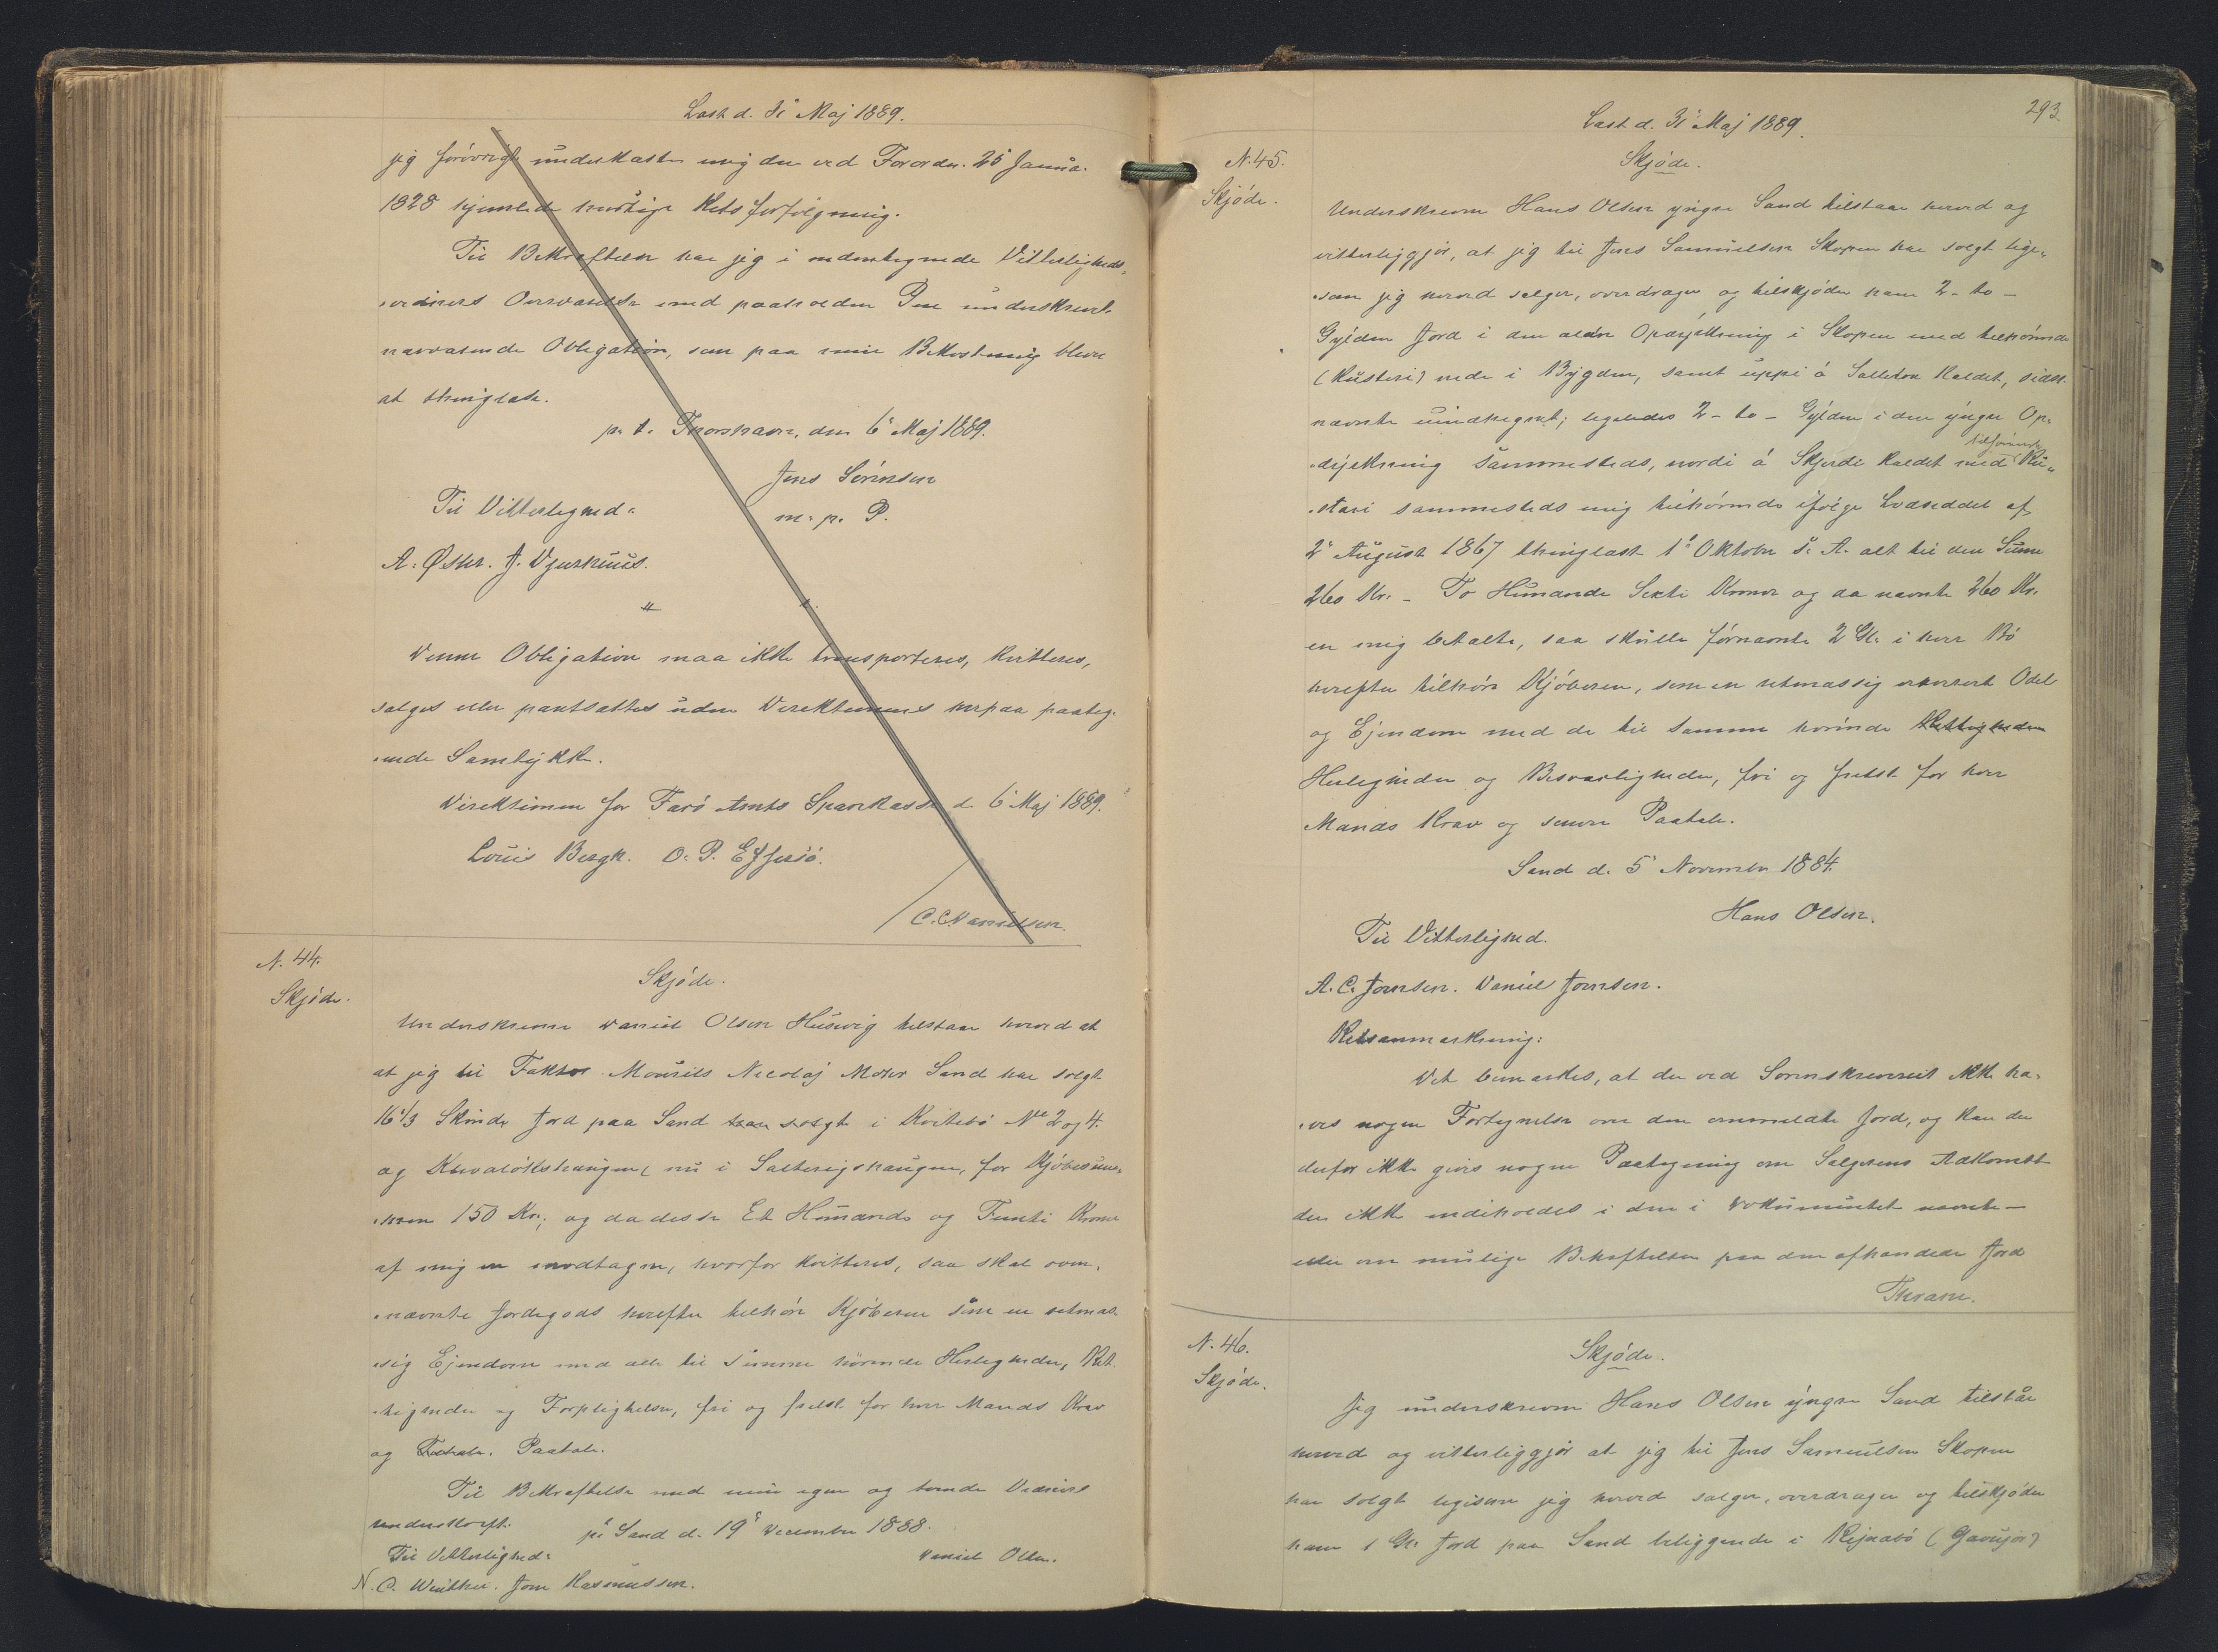 Læst d. 31' Maj 1889.
jeg forövrigt underkaster mig den ved Forordn. 25' Janua.
1828 hjemlede hurtige Retsforfölgning.
Til Bekræftelse har jeg i undertegnede Vitterligheds„
„vidners Overværelse med paaholden Pen underskrevet
nærværende Obligation, som paa min Bekostning bliver
at thinglæse.
p. t. Thorshavn, den 6' Maj 1889.
Jens Sörensen
m. p. P.
Til Vitterlighed:
A. Øster. J. Djurhuus.
Denne Obligation maa ikke transporteres, kvitteres,
sælges eller pantsættes uden Direktionens herpaa paateg„
„nede Samtykke.
Direktionen for Færö Amts Sparekasse d. 6' Maj 1889.
Louis Bergh. O. P. Effersö.
C. C. Danielsen.
N. 44.
Skjöde.
Skjöde.
Underskrevne Daniel Olsen Husevig tilstaar herved at
at jeg til Faktor Mourits Nicolaj Mohr Sand har solgt
16 1/3 Skinds Jord paa Sand har solgt i Kvitebö No 2 og 4.
og haugen nu i Salterigshaugen, for Kjöbesum„
„men 150 Kr.; og da disse Et Hundrede og Femti Kroner
af mig er modtagen, hvorfor kvitteres, saa skal oven„
„nævnte Jordegods herefter tilhöre Kjöberen som en retmæs„
„sig Ejendom med alle til samme hörende Herligheder, Ret„
„tigheder og Forpligtelser, fri og frelst for hver Mands Krav
og Paatale.
Til Bekræftelse med min egen og tvende Vidners
underskrift.
på Sand d. 19' December 1888.
Til Vitterlighed: Daniel Olsen.
N. C. Winther. Joen Rasmussen.
293
Læst d. 31' Maj 1889.
N. 45.
Skjöde.
Skjöde.
Underskrevne Hans Olsen yngre Sand tilstaar herved og
vitterliggjör, at jeg til Jens Samuelsen Skopen har solgt lige„
„som jeg herved sælger, overdrager og tilskjöder ham 2 - to -
Gylden Jord i den ældre Opdyrkning i Skopen med tilhörende
(Rusteri) nede i Bygden, samt uppi á kaldet, sidst„
nævnte uindhegnet; ligeledes 2 - to - Gylden i den yngre Op„
„dyrkning sammesteds, nordi á Skjerdi kaldet med tilhörende Ru„
„steri sammesteds mig tilhörende ifölge Lodseddel af
2' August 1867 thinglæst 1' Oktober s. A. alt til den Sum
260 Kr. - To Hundrede Sexti Kroner og da nævnte 260 Kr.
er mig betalte, saa skulle förnævnte 2 Gl. i hver Bö
herefter tilhöre Kjöberen, som en retmæssig erhvervet Odel
og Ejendom med de til samme hörende Rettigheder
Herligheder og Besværligheder, fri og frelst for hver
Mands Krav og senere Paatale.
Sand d. 5' November 1884.
Hans Olsen.
Til Vitterlighed.
A. C. Joensen. Daniel Joensen.
Retsanmærkning:
Det bemærkes, at der ved Sorenskriveriet ikke ha„
„ves nogen Fortegnelse over den ommeldte Jord, og kan der
derfor ikke gives nogen Paategning om Sælgerens Adkomst
der ikke indeholdes i den i Dokumentet nævnte -
eller om mulige Behæftelser paa den afhændede Jord
N. 46.
Skjöde.
Skjöde.
Jeg underskrevne Hans Olsen yngre Sand tilstår
herved og vitterliggjör at jeg til Jens Samuelsen Skopen
har solgt ligesom jeg herved sælger, overdrager og tilskjöder
ham 1 Gl. Jord paa Sand beliggende i Rejnabö